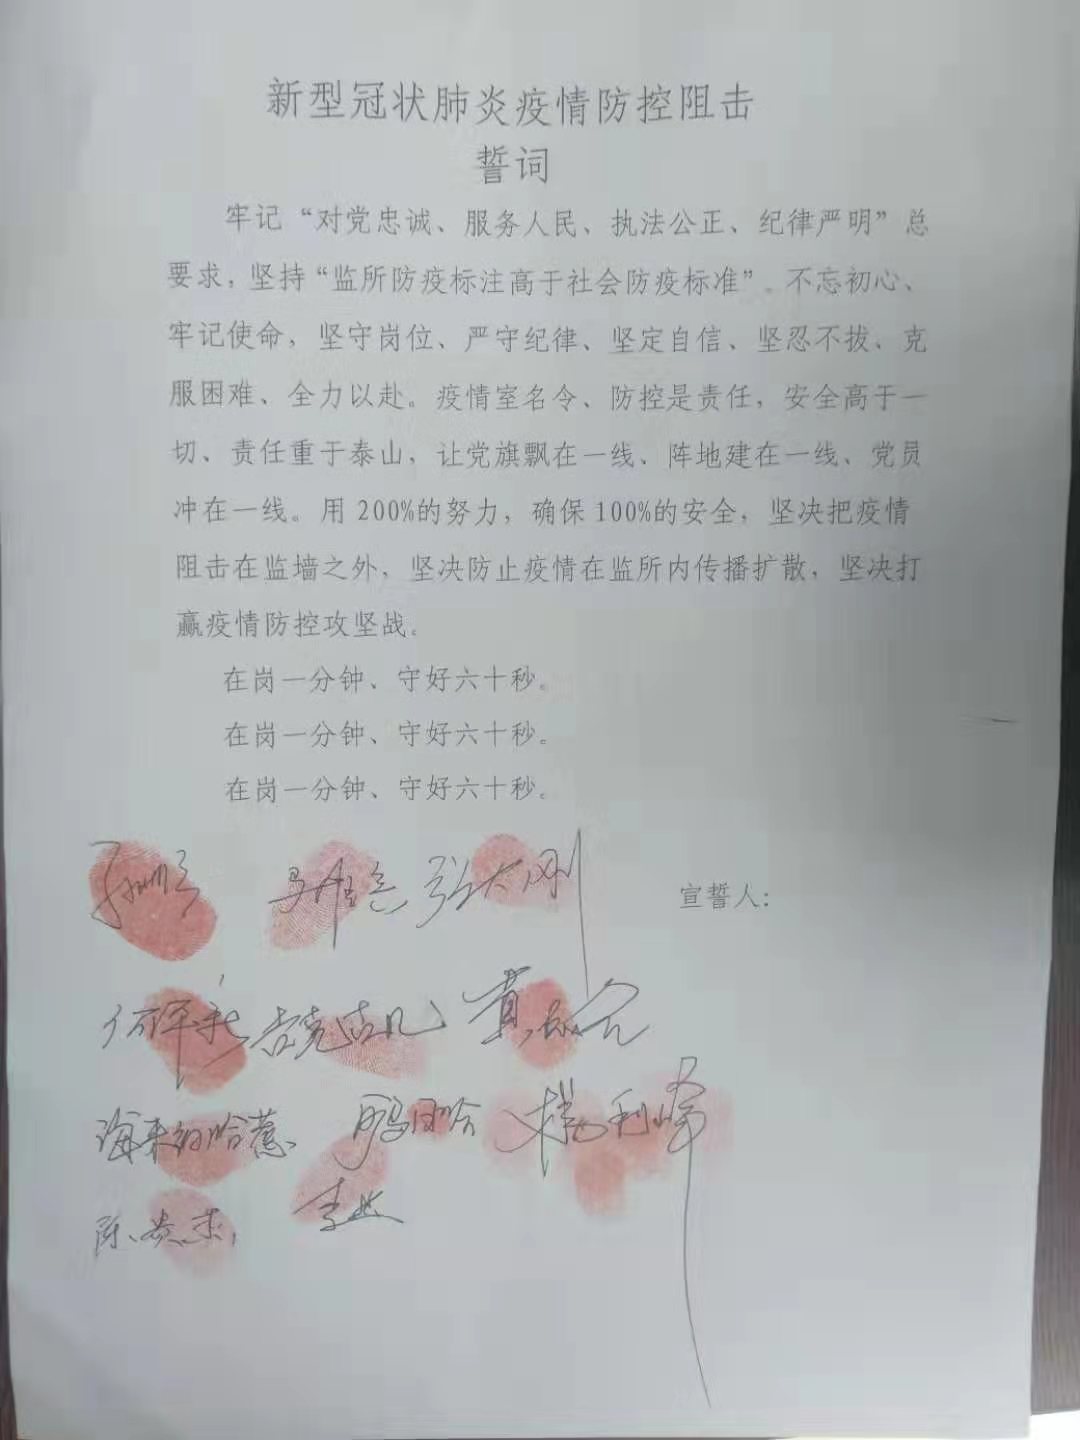 新型冠状肺炎疫情防控阻击
誓词
牢记“对党忠诚、服务人民、执法公正、纪律严明”总
要求，坚持“监所防疫标注高于社会防疫标准”。不忘初心、
牢记使命，坚守岗位、严守纪律、坚定自信、坚忍不拔、克
服困难、全力以赴。疫情室名令、防控是责任，安全高于一
切、责任重于泰山，让党旗飘在一线、阵地建在一线、党员
冲在一线。用200%的努力，确保100%的安全，坚决把疫情
阻击在监墙之外，坚决防止疫情在监所内传播扩散，坚决打
赢疫情防控攻坚战。
在岗一分钟、守好六十秒。
在岗一分钟、守好六十秒。
在岗一分钟、守好六十秒。
张大刚
宣誓人：
吉克古几